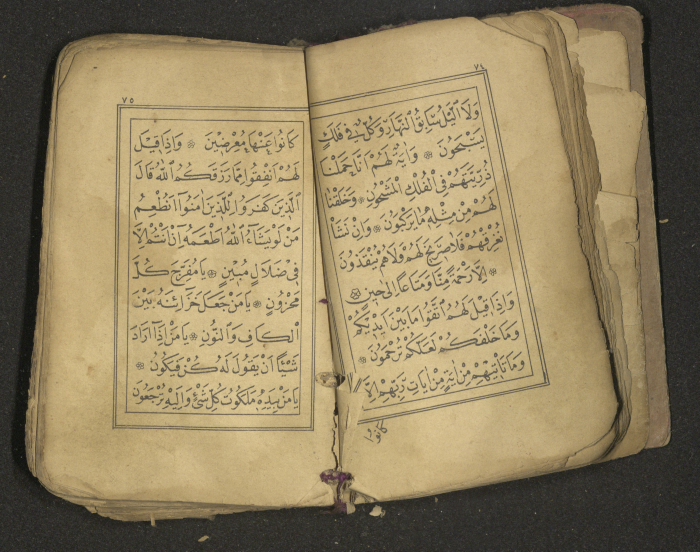 ٧٤
وَلَا الَّيْلُ سَابِقُ النَّهَارِ وَكُلٌّ فِي فَلَكٍ
يَسْبَحُونَ ۞ وَايَةٌ لَهُمْ اَنَّا حَمَلْنَا
ذُرِّيَّتَهُمْ فِي الْفُلْكِ الْمَشْحُونِ ۞ وَخَلَقْنَا
لَهُمْ مِنْ مِثْلِهِ مَا يَرْكَبُونَ ۞ وَاِنْ نَشَأْ
نُغْرِقْهُمْ فَلَا صَرِيخَ لَهُمْ وَلَا هُمْ يُنْقَذُونَ
۞ اِلَّا رَحْمَةً مِنَّا وَمَتَاعًا اِلٰى حِينٍ ۞
وَاِذَا قِيلَ لَهُمُ اتَّقُوا مَا بَيْنَ اَيْدِيكُمْ
وَمَا خَلْفَكُمْ لَعَلَّكُمْ تُرْحَمُونَ ۞
وَمَا تَأْتِيهِمْ مِنْ اٰيَةٍ مِنْ اٰيَاتِ رَبِّهِمْ اِلَّا
كانوا
٧٥
كَانُوا عَنْهَا مُعْرِضِينَ ۞ وَاِذَا قِيلَ
لَهُمْ اَنْفِقُوا مِمَّا رَزَقَكُمُ اللّٰهُ قَالَ
الَّذِينَ كَفَرُوا لِلَّذِينَ اٰمَنُوا اَنُطْعِمُ
مَنْ لَوْ يَشَاءُ اللّٰهُ اَطْعَمَهُ اِنْ اَنْتُمْ اِلَّا
فِي ضَلَالٍ مُبِينٍ ۞ يَا مُفَرِّحَ كُلِّ
مَحْزُونٍ ۞ يَا مَنْ جَعَلَ خَزَائِنَهُ بَيْنَ
الْكَافِ وَالنُّونِ ۞ يَا مَنْ اِذَا اَرَادَ
شَيْئًا اَنْ يَقُولَ لَهُ كُنْ فَيَكُونُ ۞
يَا مَنْ بِيَدِهِ مَلَكُوتُ كُلِّ شَيْءٍ وَاِلَيْهِ تُرْجَعُونَ